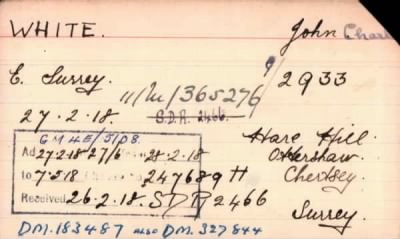 WHITE. John Charl
E. Surrey. 9/2933
11/M/365276/
27.2.18. S.D.R. 2466.
GM4E/5/08. Hare Hill
Ad 27.2.18 27/6 28.2.18 Ottershaw
to 7.5.18 247689 H Chertsey
Received 26.2.18. SDR 2466 Surrey.
DM.183487 also DM.327844